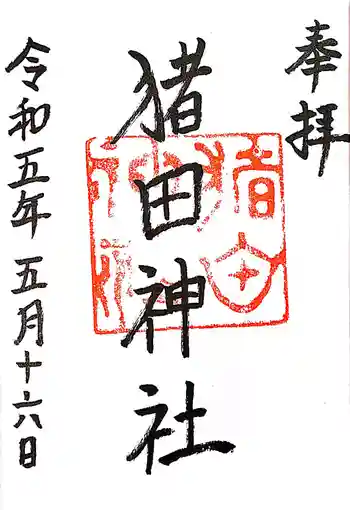 奉拝
猪田神社
令和五年五月十六日